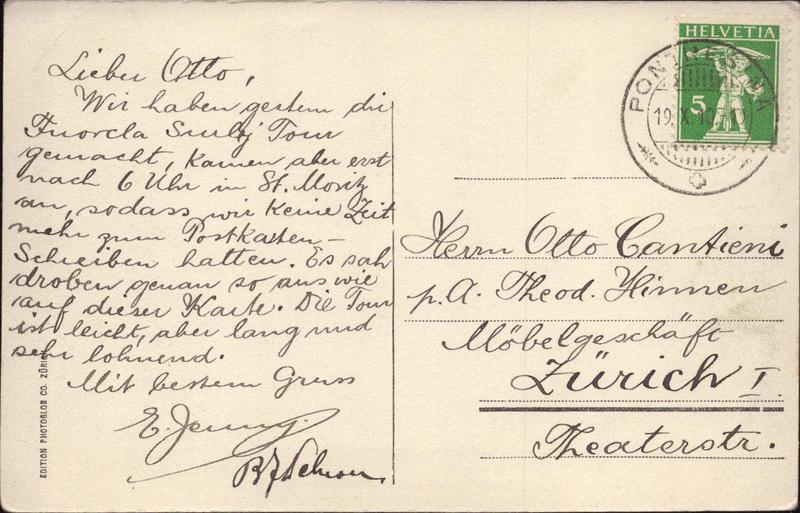 Lieber Otto,
Wir haben gestern die
Fuorcla Surlej Tour
gemacht, kamen aber erst
nach 6 Uhr in St. Moritz
an, sodass wir keine Zeit
mehr zum Postkarten-
Schreiben hatten. Es sah
droben genau so aus wie
auf dieser Karte. Die Tour
ist leicht, aber lang und
sehr lohnend.
Mit bestem Gruss
E. Jenny.
EDITION PHOTOGLOB CO. ZÜRICH
HELVETIA
5
PONTRESINA
19. X. 10
Herrn Otto Cantieni
p. A. Theod. Hinnen
Möbelgeschäft
Zürich I.
Theaterstr.